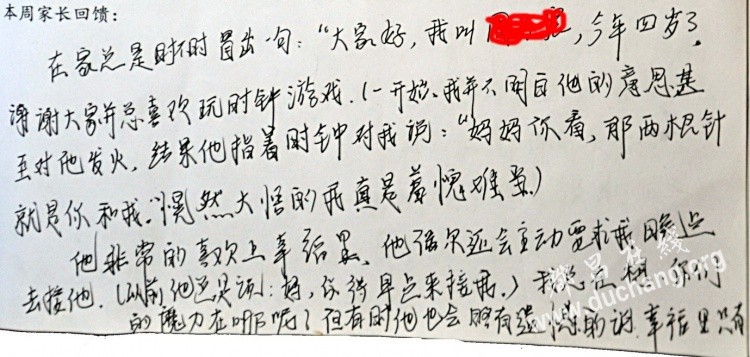 本周家长回馈：
在家总是时不时冒出一句："大家好，我叫，今年四岁了，
谢谢大家并总喜欢玩时钟游戏.(一开始、我并不明白他的意思甚
至对他发火，结果他指着时钟对我说："妈妈你看，那两根针
就是你和我."愰然大悟的我真是羞愧难当.)
他非常的喜欢上幸福里、他偶尔还会主动要求我晚点
去接他.(以前他总是说:妈,你得早点来接我.)我总在想,你们
的魔力在哪呢?但有时他也会略有遗憾的说.幸福里只有
www.duchang.org